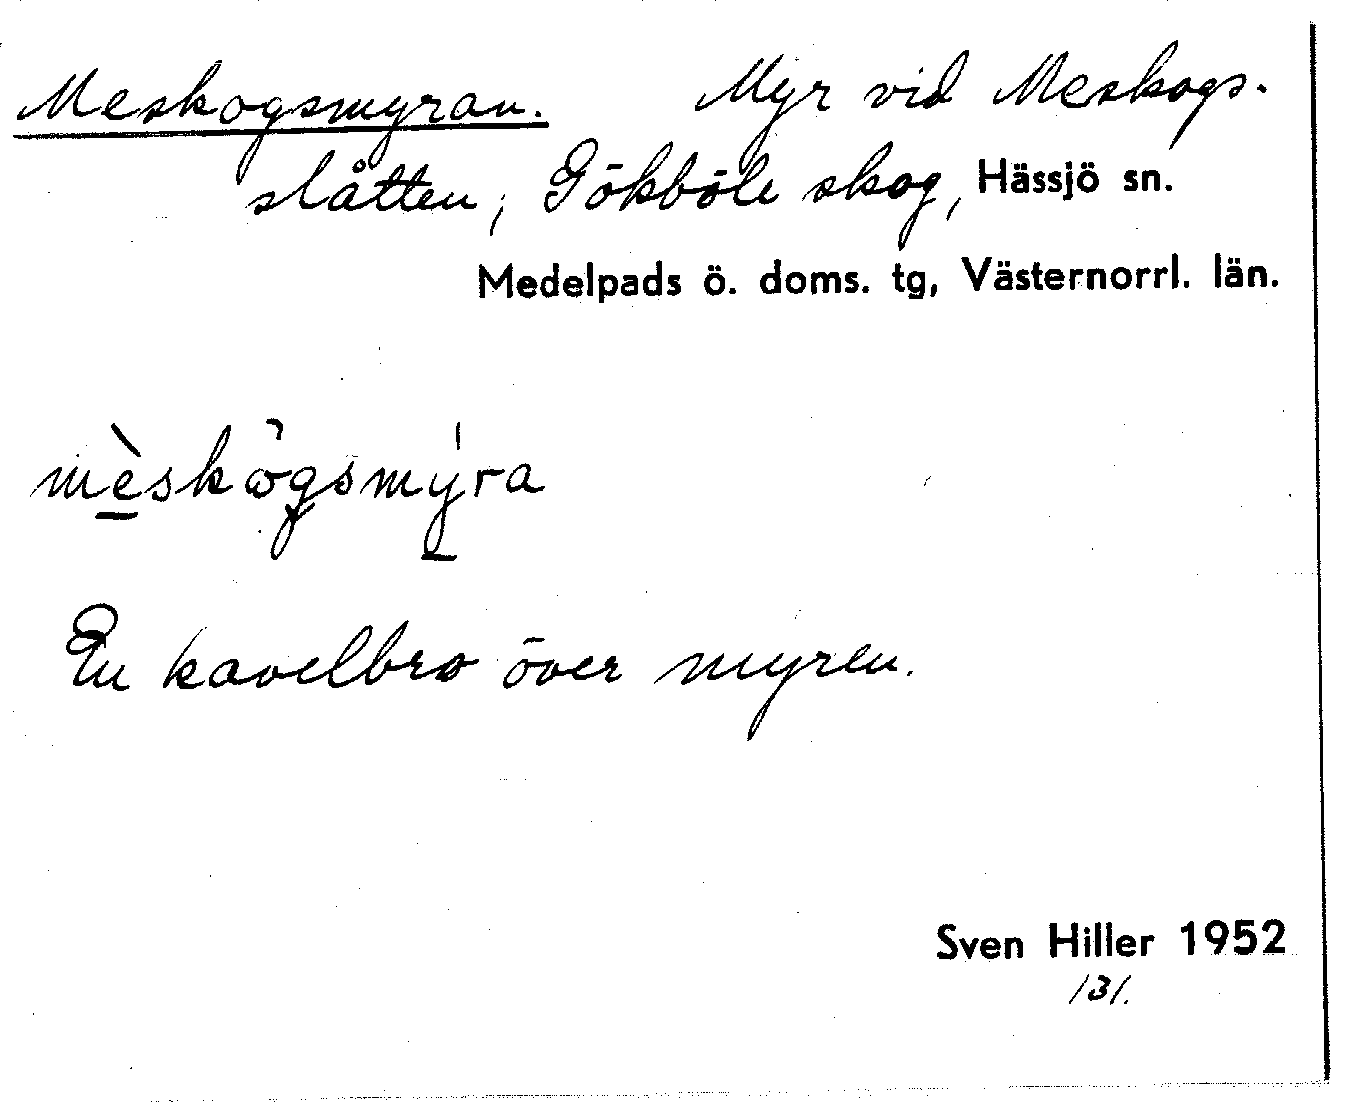 Meskogsmyran. Myr vid Meskogs-
slåtten, Gökböle skog, Hässjö sn.
Medelpads ö. doms. tg, Västernorrl. län.
mèskògsmýra
En kavelbro över myren.
Sven Hiller 1952
131.